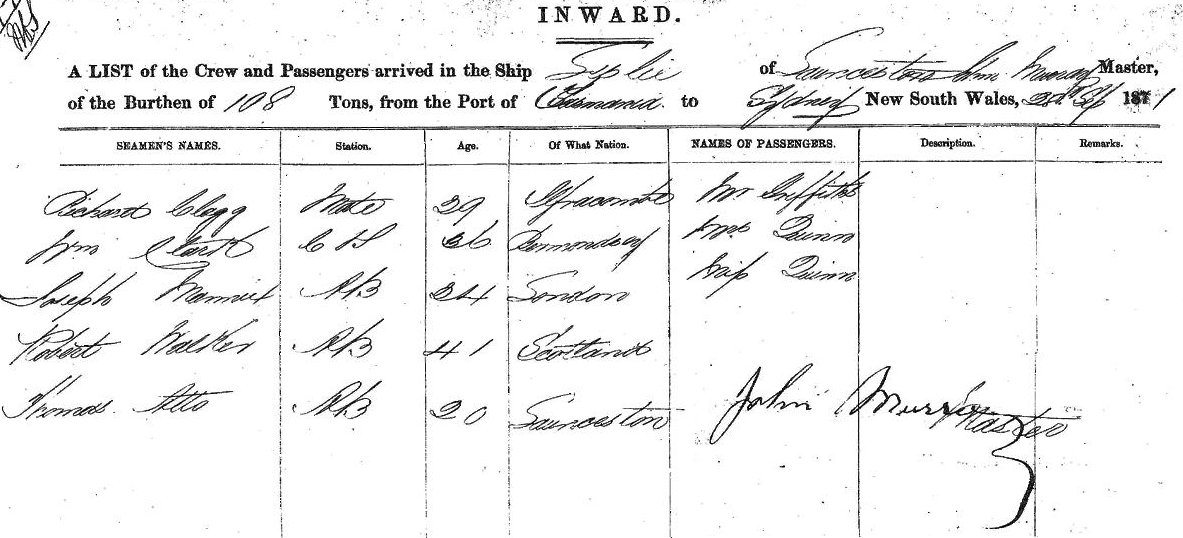 INWARD.
A LIST of the Crew and Passengers arrived in the Ship Sylie of Launceston John Murray Master,
of the Burthen of 108 Tons, from the Port of Tasmania to Sydney New South Wales, Sep 1871
SEAMEN'S NAMES. Station. Age. Of What Nation. NAMES OF PASSENGERS. Description. Remarks.
Richard Clegg Mate 29 Ilfracombe Mr Griffiths
Wm Clark C & S 36 Bermondsey Mrs Quinn
Miss Quinn
Joseph AB 34 London
Robert Walker AB 41 Scotland
Thomas Atto AB 20 Launceston
John Murray
Master